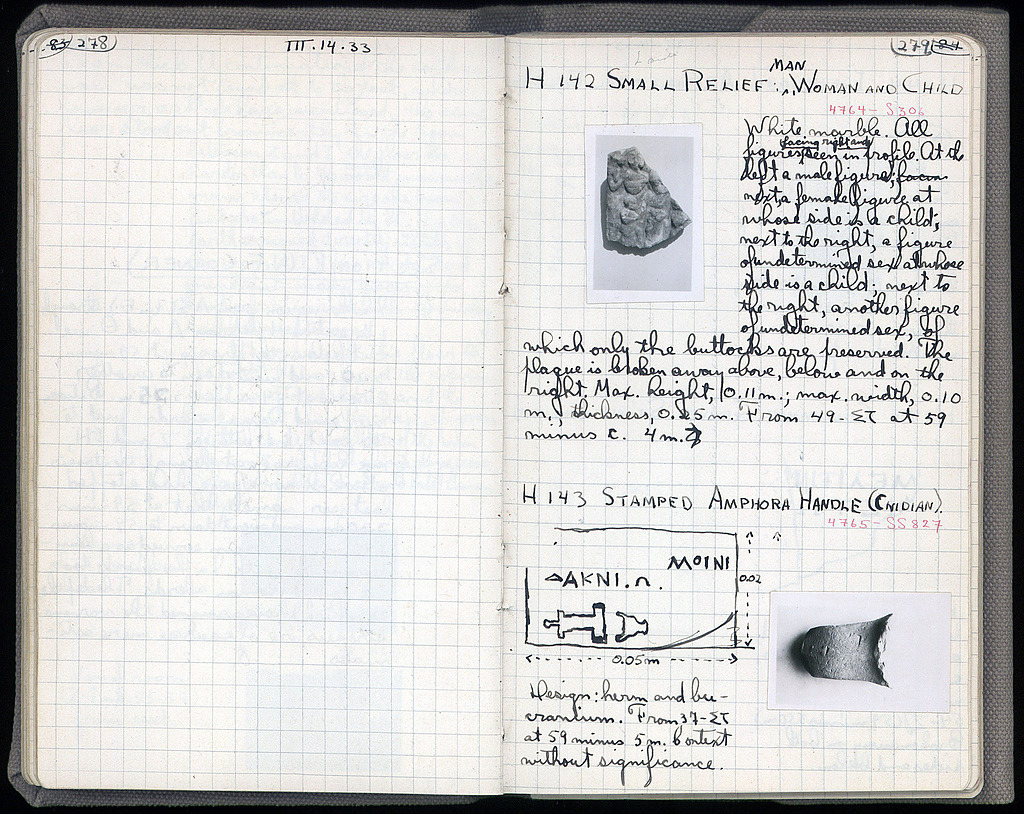 83 278
III.14.33
279 84
MAN
H 142 SMALL RELIEF: WOMAN AND CHILD
4764-S306
White marble. All
facing right and
figures seen in profile. At the
left a male figure; facin
next, a female figure at
whose side is a child;
next to the right, a figure
of undetermined sex at whose
side is a child; next to
the right, another figure
of undetermined sex, of
which only the buttocks are preserved. The
plaque is broken away above, below and on the
right. Max. height, 0.11 m.; max. width, 0.10
m., thickness, m. From 49-ΣΤ at 59
minus c. 4 m.
H 143 STAMPED AMPHORA HANDLE (CNIDIAN).
4765-SS827
MOINI
ΔAKNI.Π.
0.02
0.05m
Design: herm and bu-
cranium. From 37-ΣΤ
at 59 minus 5 m. Context
without significance.